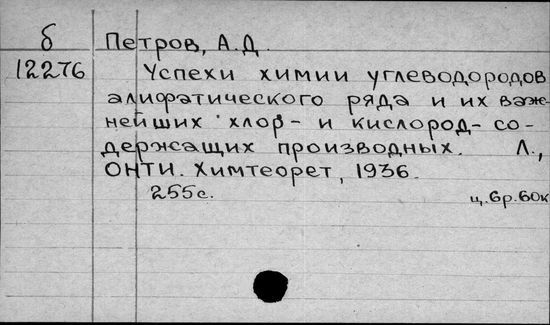 б Петров, А.Д.
12276 Успехи химии углеводородов
алифатического ряда и их важ-
нейших хлор- и кислород- со-
держащих производных. Л.,
ОНТИ. Химтеорет, 1936.
255с. ц. 6р. 60к